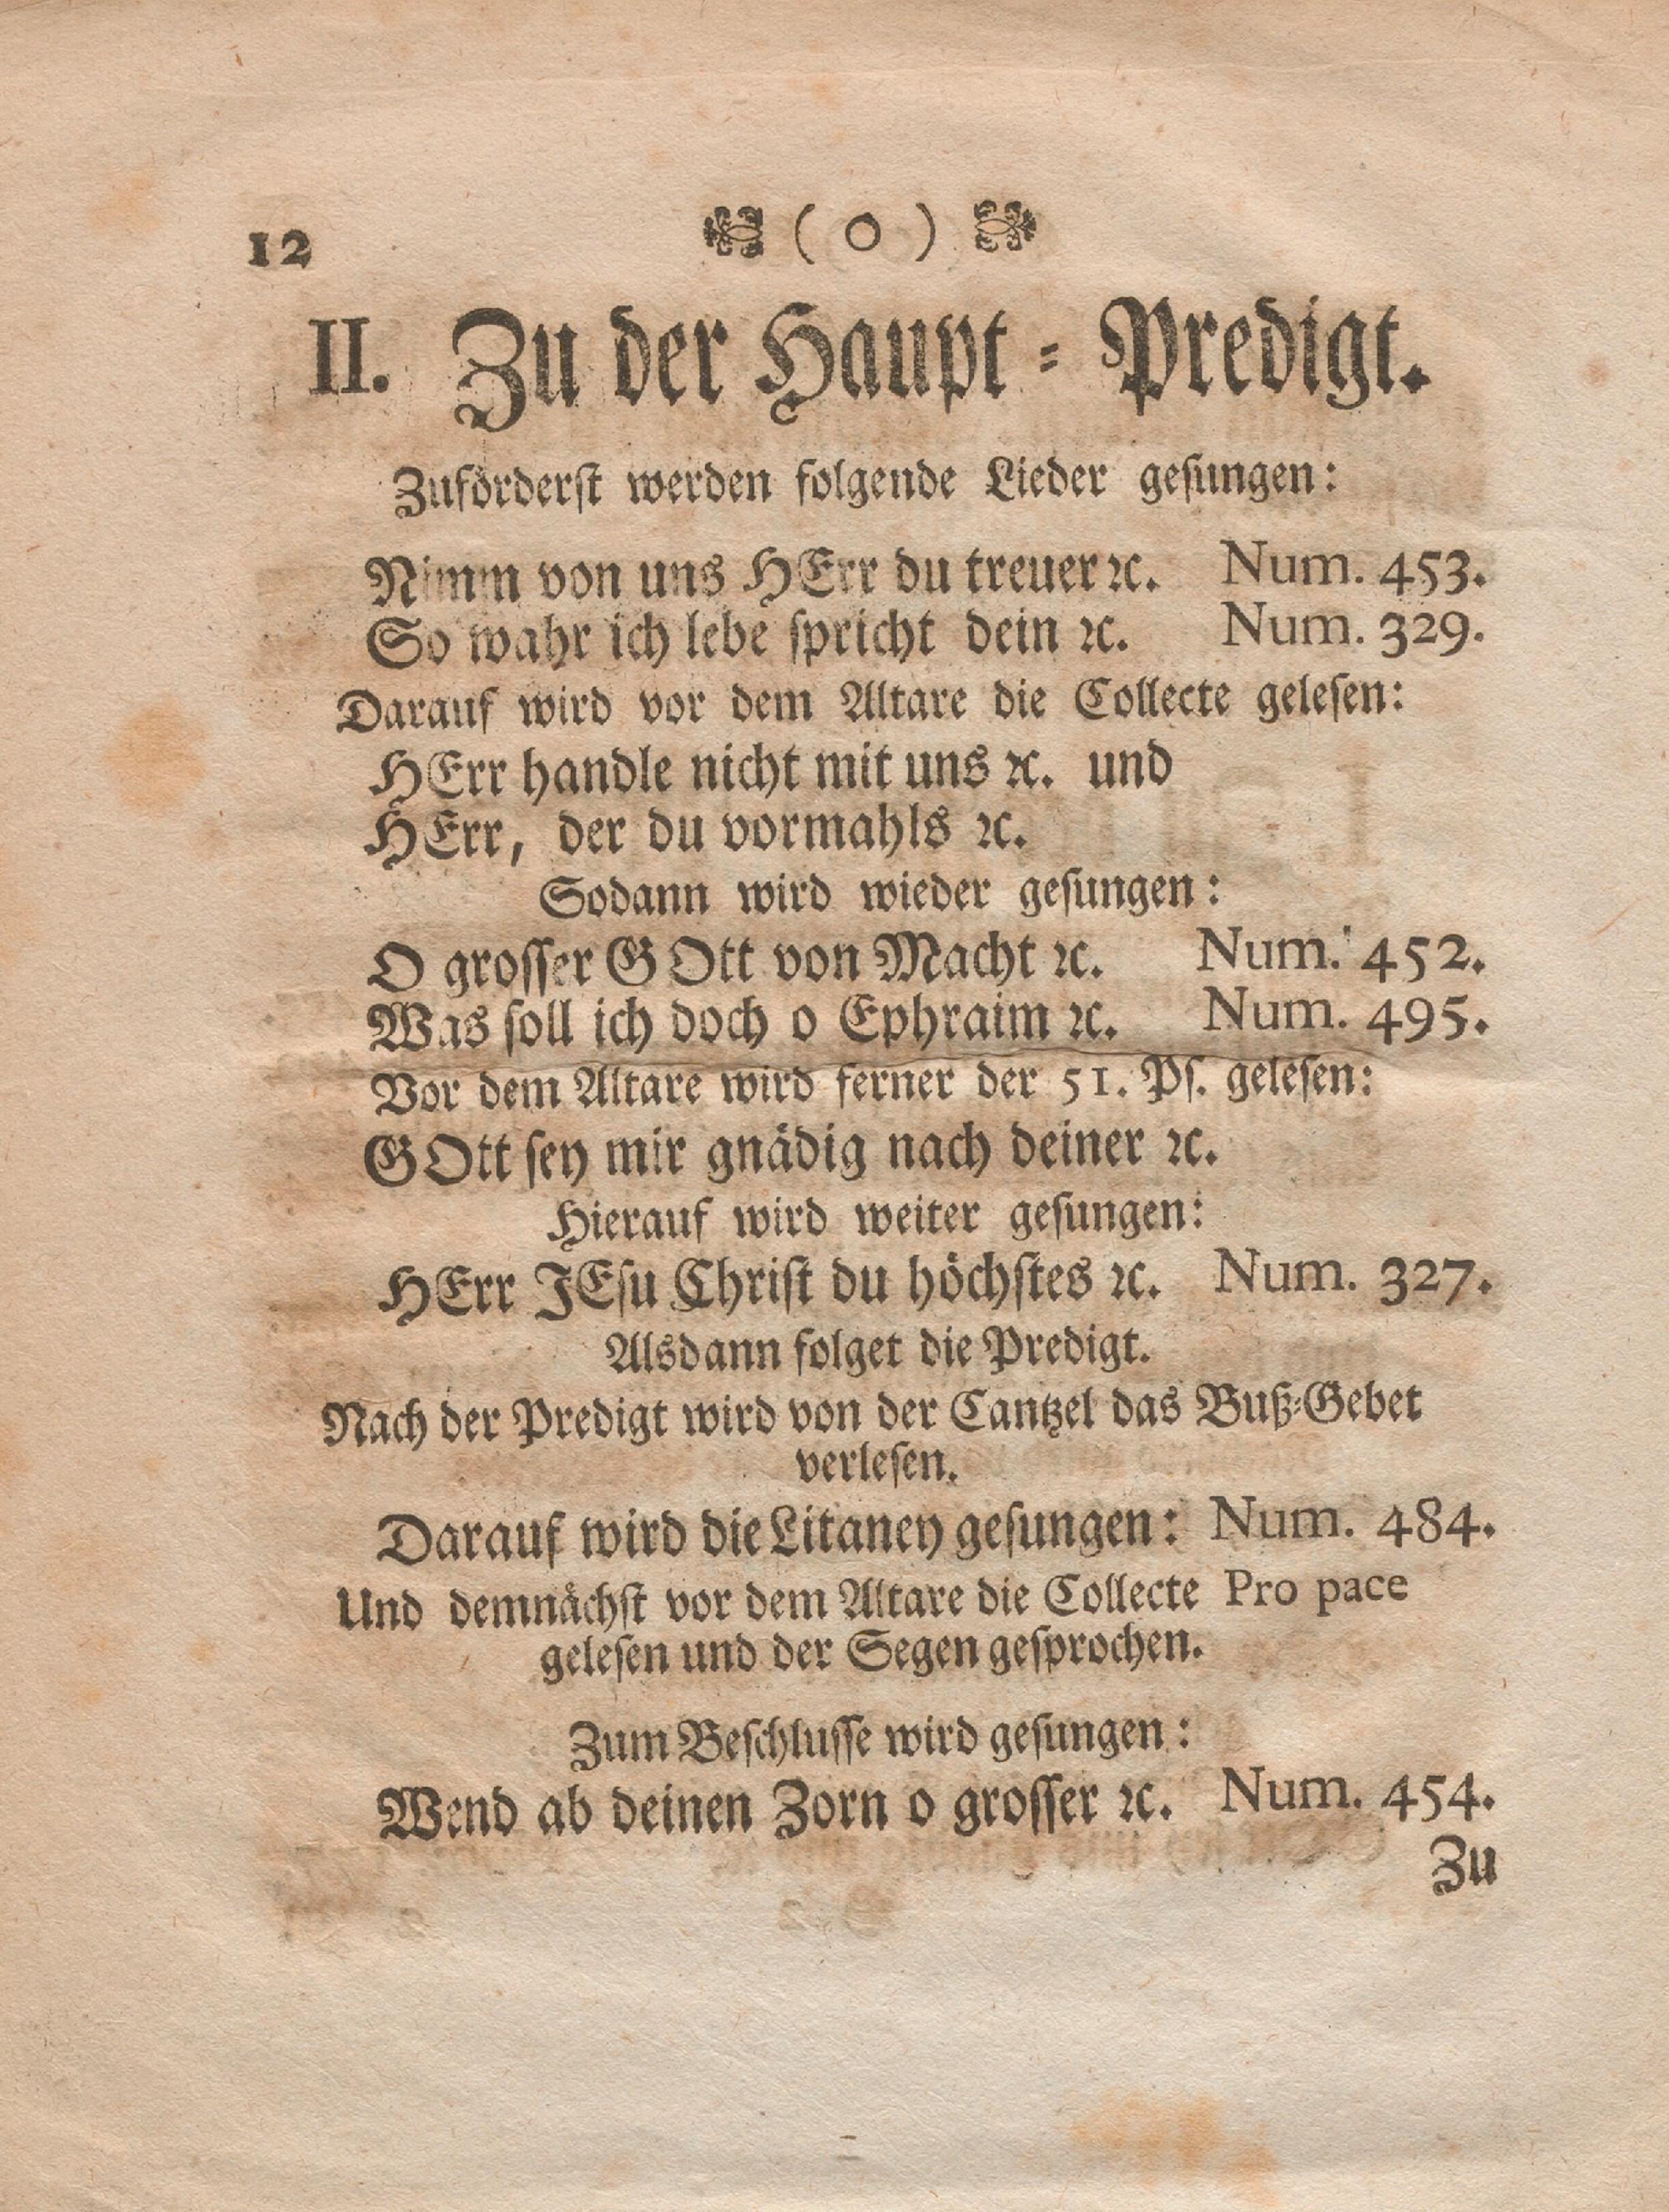 12 ( o )
II. Zu der Haupt⸗Predigt.
Zuförderſt werden folgende Lieder geſungen:
Nimm von uns HErr du treuer ꝛc. Num. 453.
So wahr ich lebe ſpricht dein ꝛc. Num. 329.
Darauf wird vor dem Altare die Collecte geleſen:
HErr handle nicht mit uns ꝛc. und
HErr, der du vormahls ꝛc.
Sodann wird wieder geſungen:
O groſſer GOtt von Macht ꝛc. Num. 452.
Was ſoll ich doch o Ephraim ꝛc. Num. 495.
Vor dem Altare wird ferner der 51. Pſ. geleſen:
GOtt ſey mir gnädig nach deiner ꝛc.
Hierauf wird weiter geſungen:
HErr JEſu Chriſt du höchſtes ꝛc. Num. 327.
Alsdann folget die Predigt.
Nach der Predigt wird von der Cantzel das Buß⸗Gebet
verleſen.
Darauf wird die Litaney geſungen: Num. 484.
Und demnächſt vor dem Altare die Collecte Pro pace
geleſen und der Segen geſprochen.
Zum Beſchluſſe wird geſungen:
Wend ab deinen Zorn o groſſer ꝛc. Num. 454.
Zu